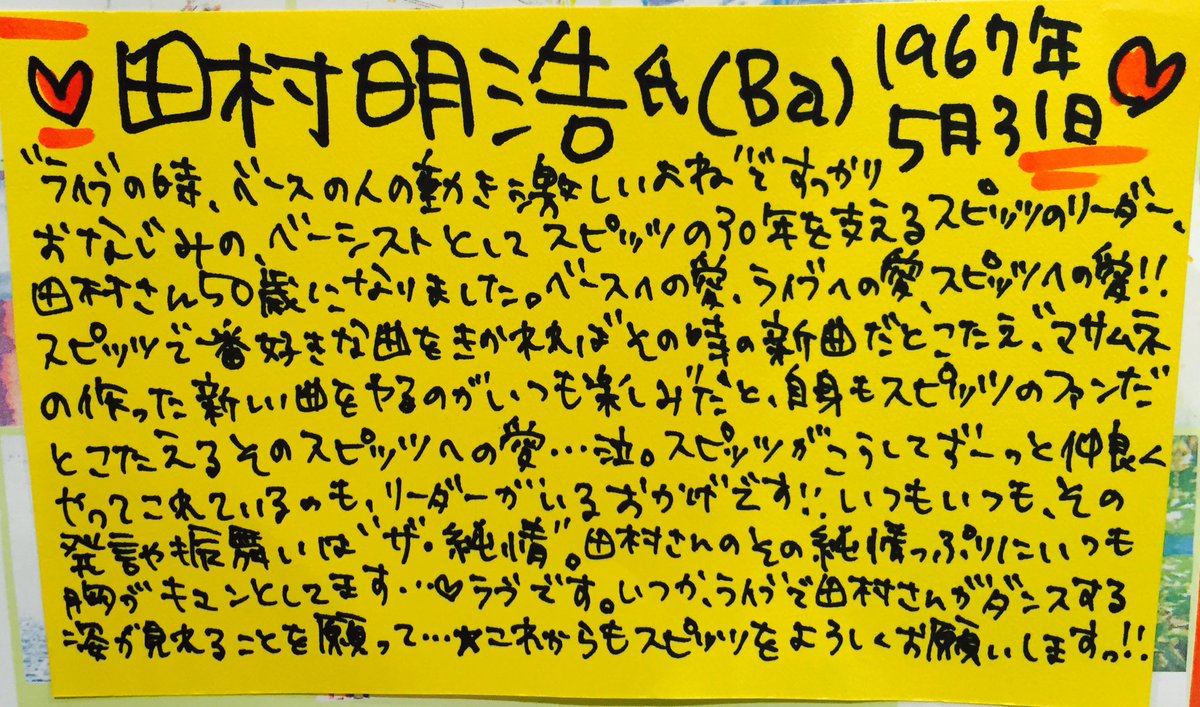 ♥田村明浩氏(Ba) 1967年5月31日♥
"ライヴの時、ベースの人の動き激しいよね"ですっかり
おなじみの、ベーシストとしてスピッツの30年を支えるスピッツのリーダー、
田村さん50歳になりました。ベースへの愛、ライヴへの愛、スピッツへの愛!!
スピッツで一番好きな曲をきかれればその時の新曲だとこたえ、マサムネ
の作った新しい曲をやるのがいつも楽しみだと、自身もスピッツのファンだ
とこたえるそのスピッツへの愛…泣。スピッツがこうしてずーっと仲良く
やってこれているのも、リーダーがいるおかげです!!いつもいつも、その
発言や振舞いは"ザ・純情"。田村さんのその純情っぷりにいつも
胸がキュンとしてます…♥ラヴです。いつか、ライヴで田村さんがダンスする
姿が見れることを願って…★これからもスピッツをよろしくお願いしますっ!!